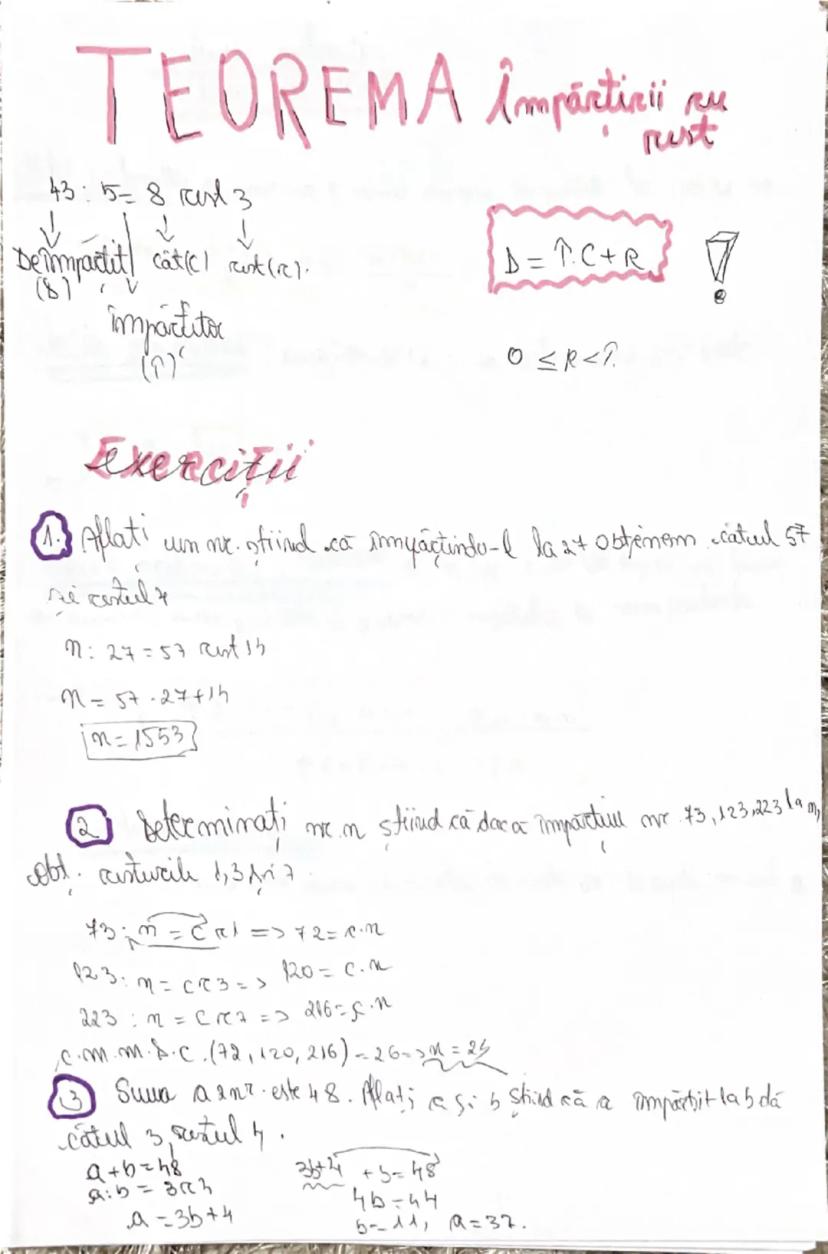 TEOREMA împărțirii cu rest
43 : 5 = 8 rest 3
Deîmpărțit cât(c) rest(r).
(D)
împărțitor
(Î)
D = Î.C + R
!
0 ≤ R < Î
Exerciții
1. Aflați un nr. știind că împărțindu-l la 27 obținem câtul 57
și restul
n : 27 = 57 rest 14
n = 57 . 27 + 14
n = 1553
2 Determinați nr. n știind că dacă împărțim nr. 73, 123, 223 la n,
obț. resturile 1, 3 și 7.
73 : n = C r 1 => 72 = c.n
123 : n = c r 3 => 120 = c.n
223 : n = c r 7 => 216 = c.n
c.m.m.d.c. (72, 120, 216) = => n = 24
3 Suma a 2 nr. este 48. Aflați a și b știind că a împărțit la b dă
câtul 3, restul 4.
a + b = 48
a : b = 3 r 4
a = 3b + 4
3b+4 + b = 48
4b = 44
b = 11, a = 37.